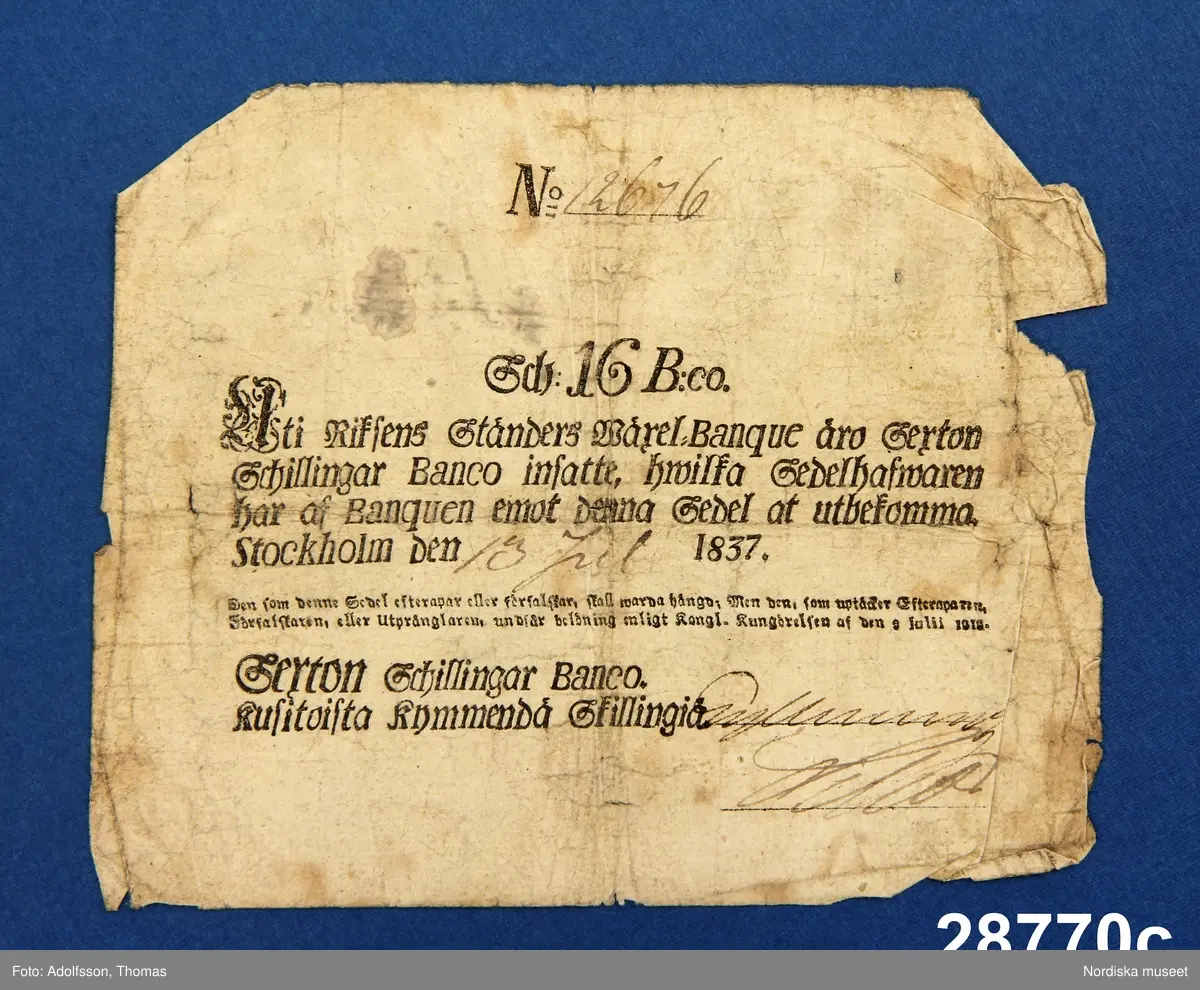 No 12676
Sch: 16 B:co.
Uti Riksens Ständers Wäxel-Banque äro Sexton
Schillingar Banco insatte, hwilka Sedelhafwaren
har af Banquen emot denna Sedel at utbekomma.
Stockholm den 13 Jul 1837.
Den som denne Sedel efterapar eller förfalskar, skall warda hängd; Men den, som uptäcker Efteraparen,
Förfalskaren, eller Utprånglaren, undfår belöning enligt Kongl. Kungörelsen af den 9 Julii 1818.
Sexton Schillingar Banco.
Kusitoista Kymmendä Skillingiä.
28770c
Foto: Adolfsson, Thomas
Nordiska museet